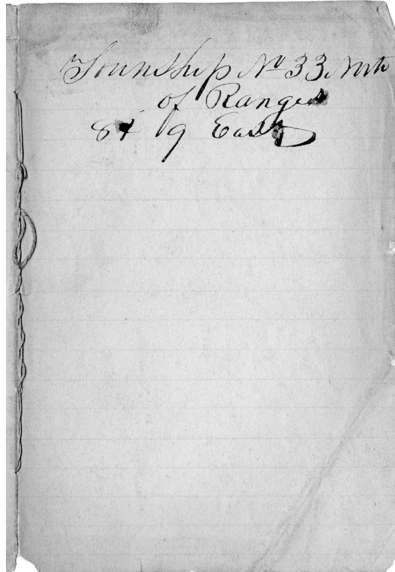 Township No 33. North
of Ranges
8 & 9 East